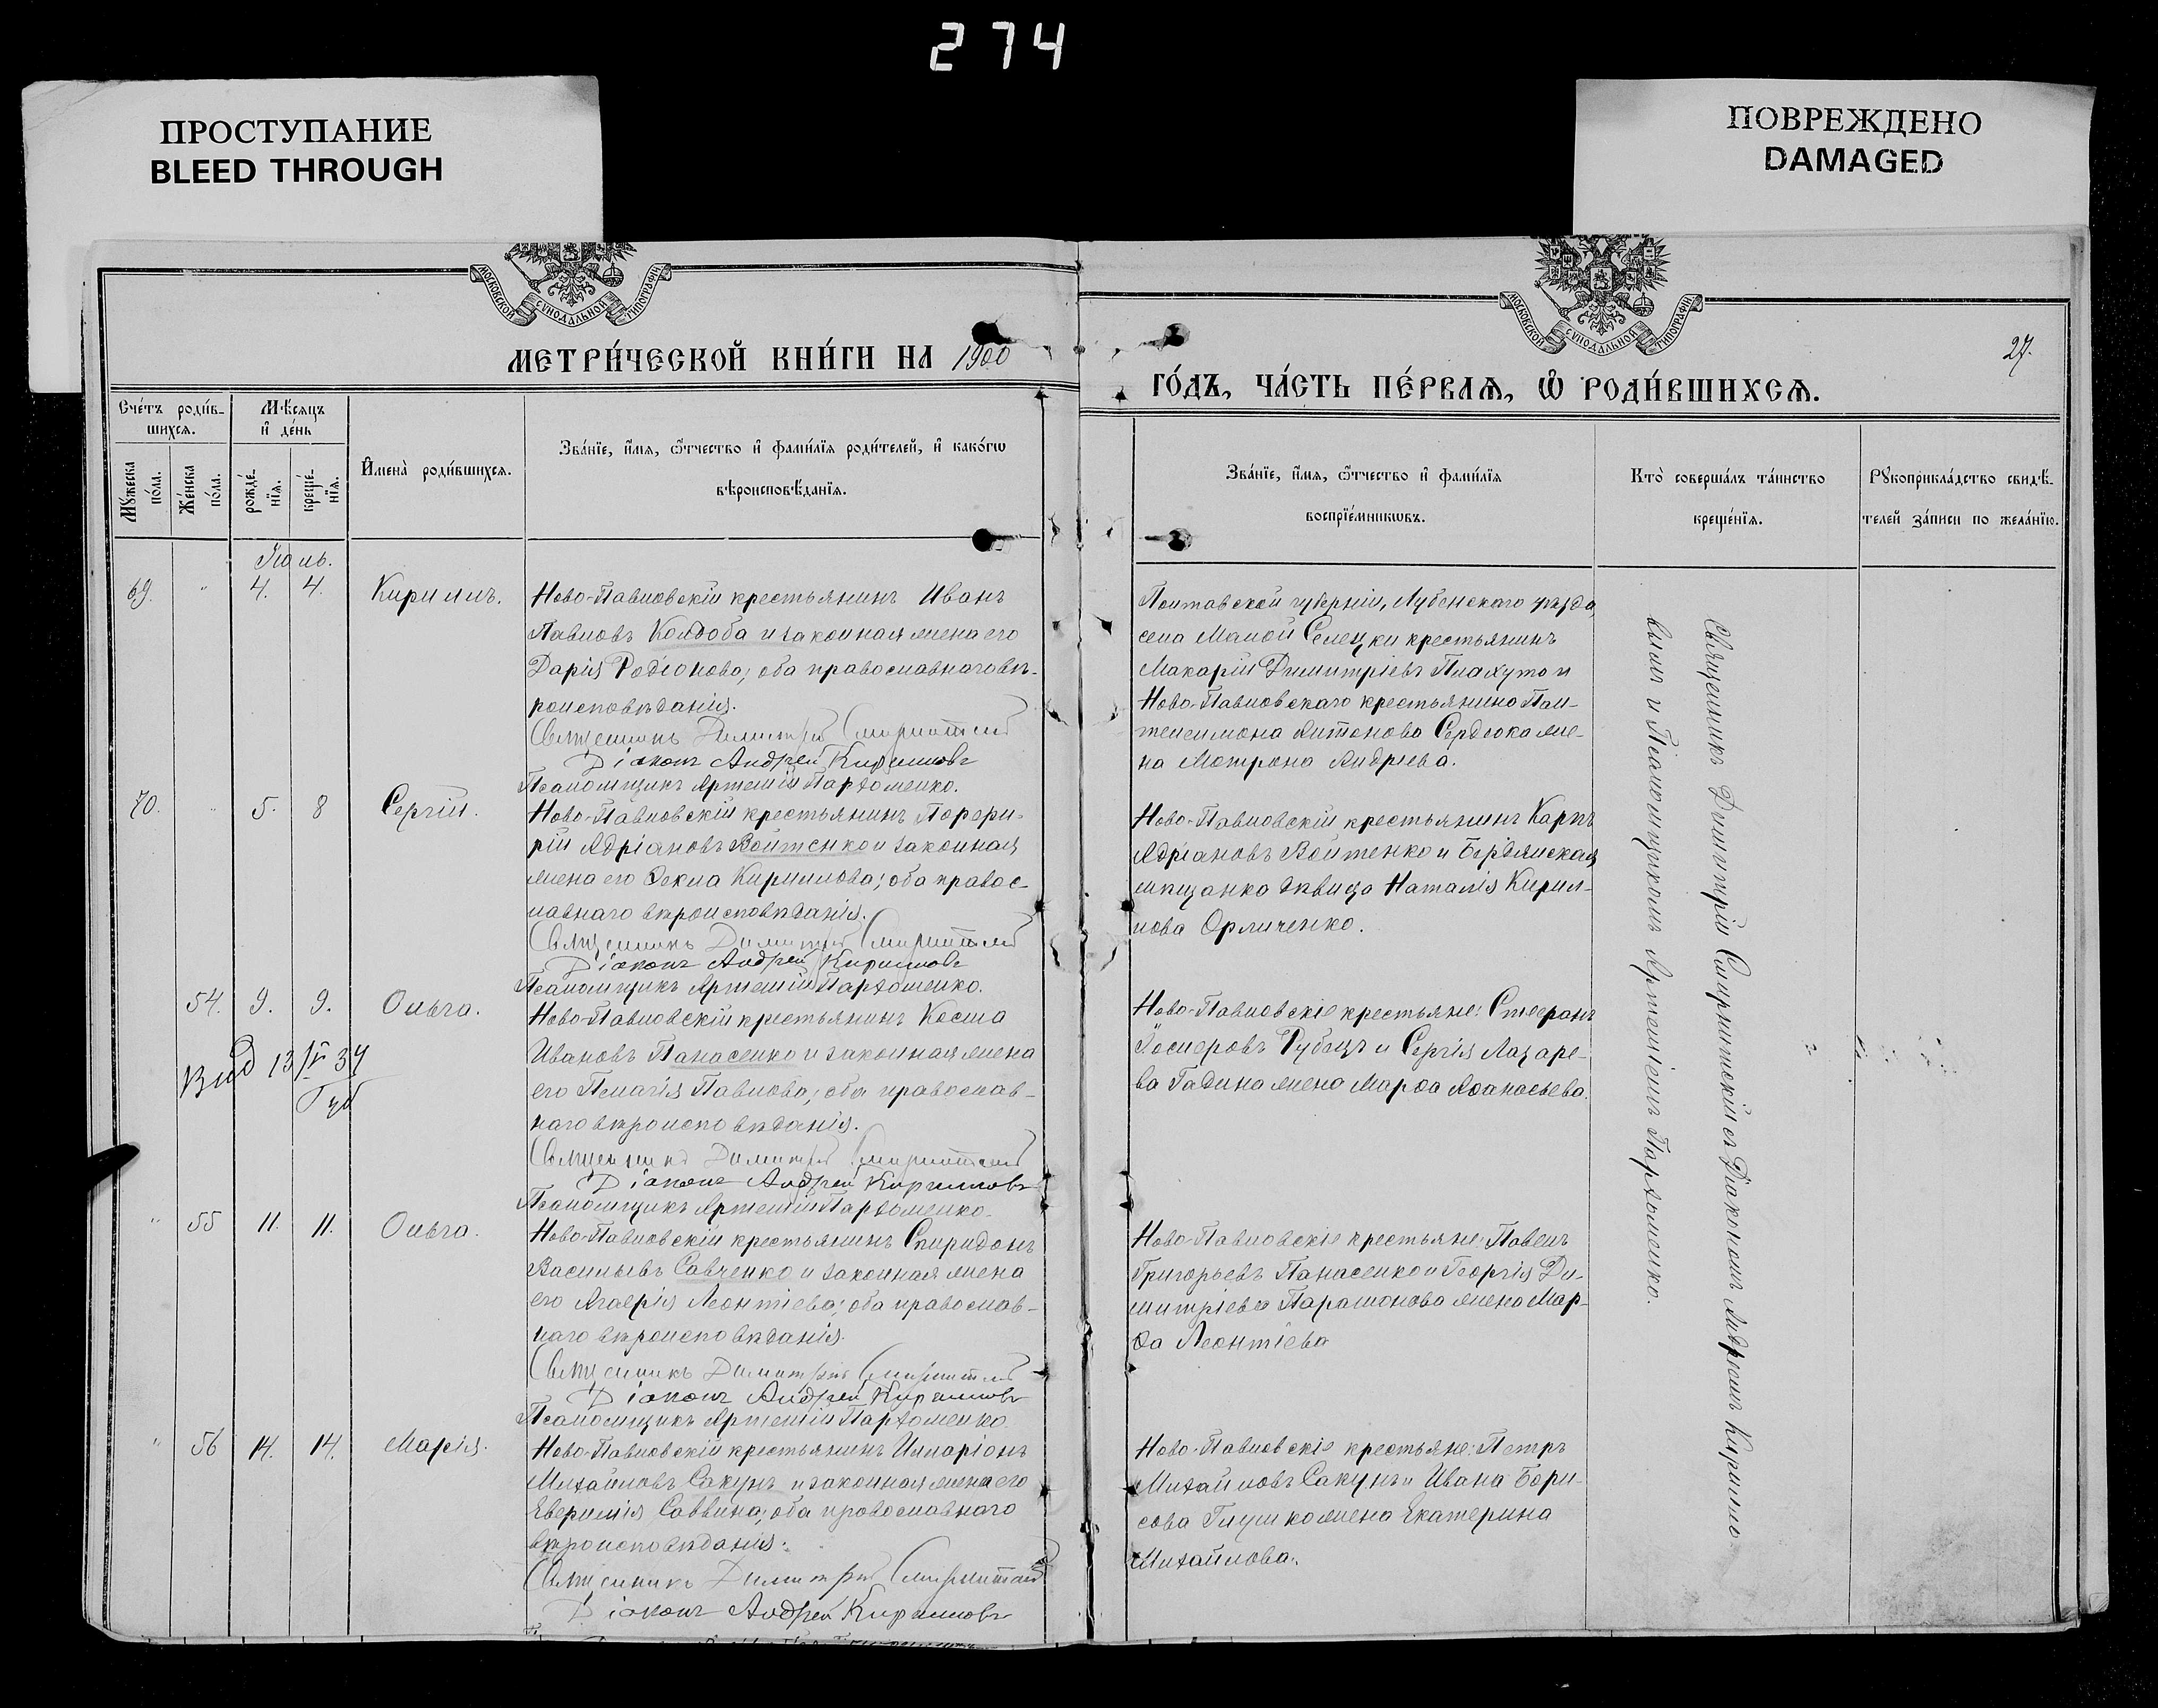 274
ПРОСТУПАНИЕ
BLEED THROUGH
ПОВРЕЖДЕНО
DAMAGED
МОСКОВСКОЙ СѴНОДАЛЬНОЙ ТИПОГРАФІИ
МОСКОВСКОЙ СѴНОДАЛЬНОЙ ТИПОГРАФІИ
МЕТРИ́ЧЕСКОЙ КНИ́ГИ НА 1900
ГО́ДЪ, ЧА́СТЬ ПЕ́РВАЯ, Ѡ РОДИ́ВШИХСЯ.
27.
Сче́тъ роди́в-
шихся.
Мѣ́сяцъ
и де́нь
Мꙋжеска по́ла.
Же́нска по́ла.
рожде́-
нїя.
креще́-
нїя.
Имена̀ роди́вшихся.
Зва́нїе, и́мя, ѻ́тчество и фами́лїя роди́телей, и како́гѡ
вѣроисповѣ́данїя.
Зва́нїе, и́мя, ѻ́тчество и фами́лїя
воспрїе́мникѡвъ.
Кто̀ соверша́лъ та́инство
креще́нїя.
Рꙋкоприкла́дство свидѣ́-
телей за́писи по жела́нїю.
Іюль.
69. " 4. 4. Кириллъ.
Ново-Павловскій крестьянинъ Иванъ
Павловъ Колдоба и законная жена его
Дарія Родіонова; оба православнаго вѣ-
роисповѣданія.
Священникъ Димитрій Смирнитскій
Діаконъ Андрей Кирилловъ
Псаломщикъ Артемій Пархоменко.
Полтавской губерніи, Лубенскаго уѣзда,
села Малой Селецки крестьянинъ
Макарій Димитріевъ Плахута и
Ново-Павловскаго крестьянина Пан-
телеимона Антонова Сердюка же-
на Мотрона Андріева.
70. " 5. 8 Сергій.
Ново-Павловскій крестьянинъ Порфи-
рій Адріановъ Войтенко и законная
жена его Ѳекла Кириллова; оба правос-
лавнаго вѣроисповѣданія.
Священникъ Димитрій Смирнитскій
Діаконъ Андрей Кирилловъ
Псаломщикъ Артемій Пархоменко.
Ново-Павловскій крестьянинъ Карпъ
Адріановъ Войтенко и Бердянская
мѣщанка дѣвица Наталія Кирил-
лова Орличенко.
54. 9. 9. Ольга.
Ново-Павловскій крестьянинъ Косма
Ивановъ Панасенко и законная жена
его Пелагія Павлова; оба православ-
наго вѣроисповѣданія.
Священникъ Димитрій Смирнитскій
Діаконъ Андрей Кирилловъ
Псаломщикъ Артемій Пархоменко.
Ново-Павловскіе крестьяне: Стефанъ
Рубецъ и Сергія Лазаре-
ва Гадина жена Марѳа Аѳанасьева.
" 55 11. 11. Ольга.
Ново-Павловскій крестьянинъ Спиридонъ
Васильевъ Савченко и законная жена
его Агафія Леонтіева; оба православ-
наго вѣроисповѣданія.
Священникъ Димитрій Смирнитскій
Діаконъ Андрей Кирилловъ
Псаломщикъ Артемій Пархоменко
Ново-Павловскіе крестьяне: Павелъ
Григорьевъ Панасенко и Георгія Ди-
митріева Парамонова жена Мар-
ѳа Леонтіева
" 56 14. 14. Марія.
Ново-Павловскій крестьянинъ Илларіонъ
Михайловъ Сакунъ и законная жена его
Евфимія Саввина; оба православнаго
вѣроисповѣданія.
Священникъ Димитрій Смирнитскій
Діаконъ Андрей Кирилловъ
Ново-Павловскіе крестьяне: Петръ
Михайловъ Сакунъ и Ивана Бори-
сова Глушка жена Екатерина
Михайлова.
Священникъ Димитрій Смирнитскій съ Діакономъ Андреемъ Кирилло-
вымъ и Псаломщикомъ Артеміемъ Пархоменко.